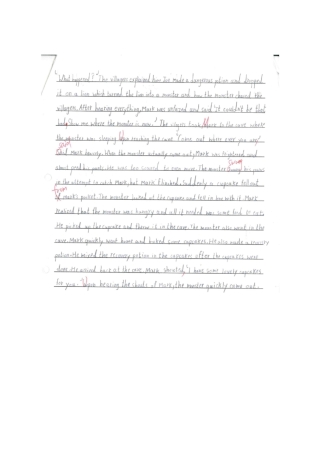 "What happened?" The villagers explained how Joe made a dangerous potion and dropped
it on a lion which turned the lion into a monster and how the monster chased the
villagers. After hearing everything, Mark was and said "it couldn't be that
bad, show me where the monster is now." The villagers took Mark to the cave where
the monster was sleeping. Upon reaching the cave, "Come out where ever you are"
said Mark bravely. When the monster actually came out, Mark was and
about his pants. He was too scared to even move. The monster swung his paws
in the attempt to catch Mark, but Mark . Suddenly a cupcake fell out
from
of Mark's pocket. The monster looked at the cupcake and fell in love with it. Mark
realised that the monster was hungry and all it needed was some food to eat.
He picked up the cupcake and threw it in the cave. The monster also went in the
cave. Mark quickly went home and baked some cupcakes. He also made a recovery
potion. He mixed the recovery potion in the cupcakes after the cupcakes were
done. He arrived back at the cave. Mark shouted, "I have some lovely cupcakes
for you." Upon hearing the shouts of Mark, the monster quickly came out.